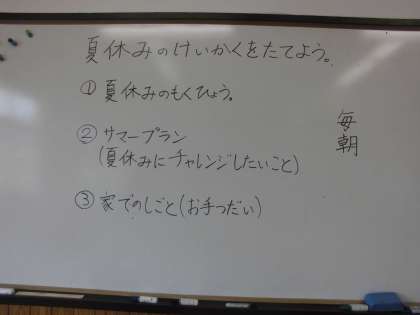 夏休みのけいかくをたてよう。
① 夏休みのもくひょう。
② サマープラン
(夏休みにチャレンジしたいこと)
③ 家でのしごと(お手つだい)
毎朝